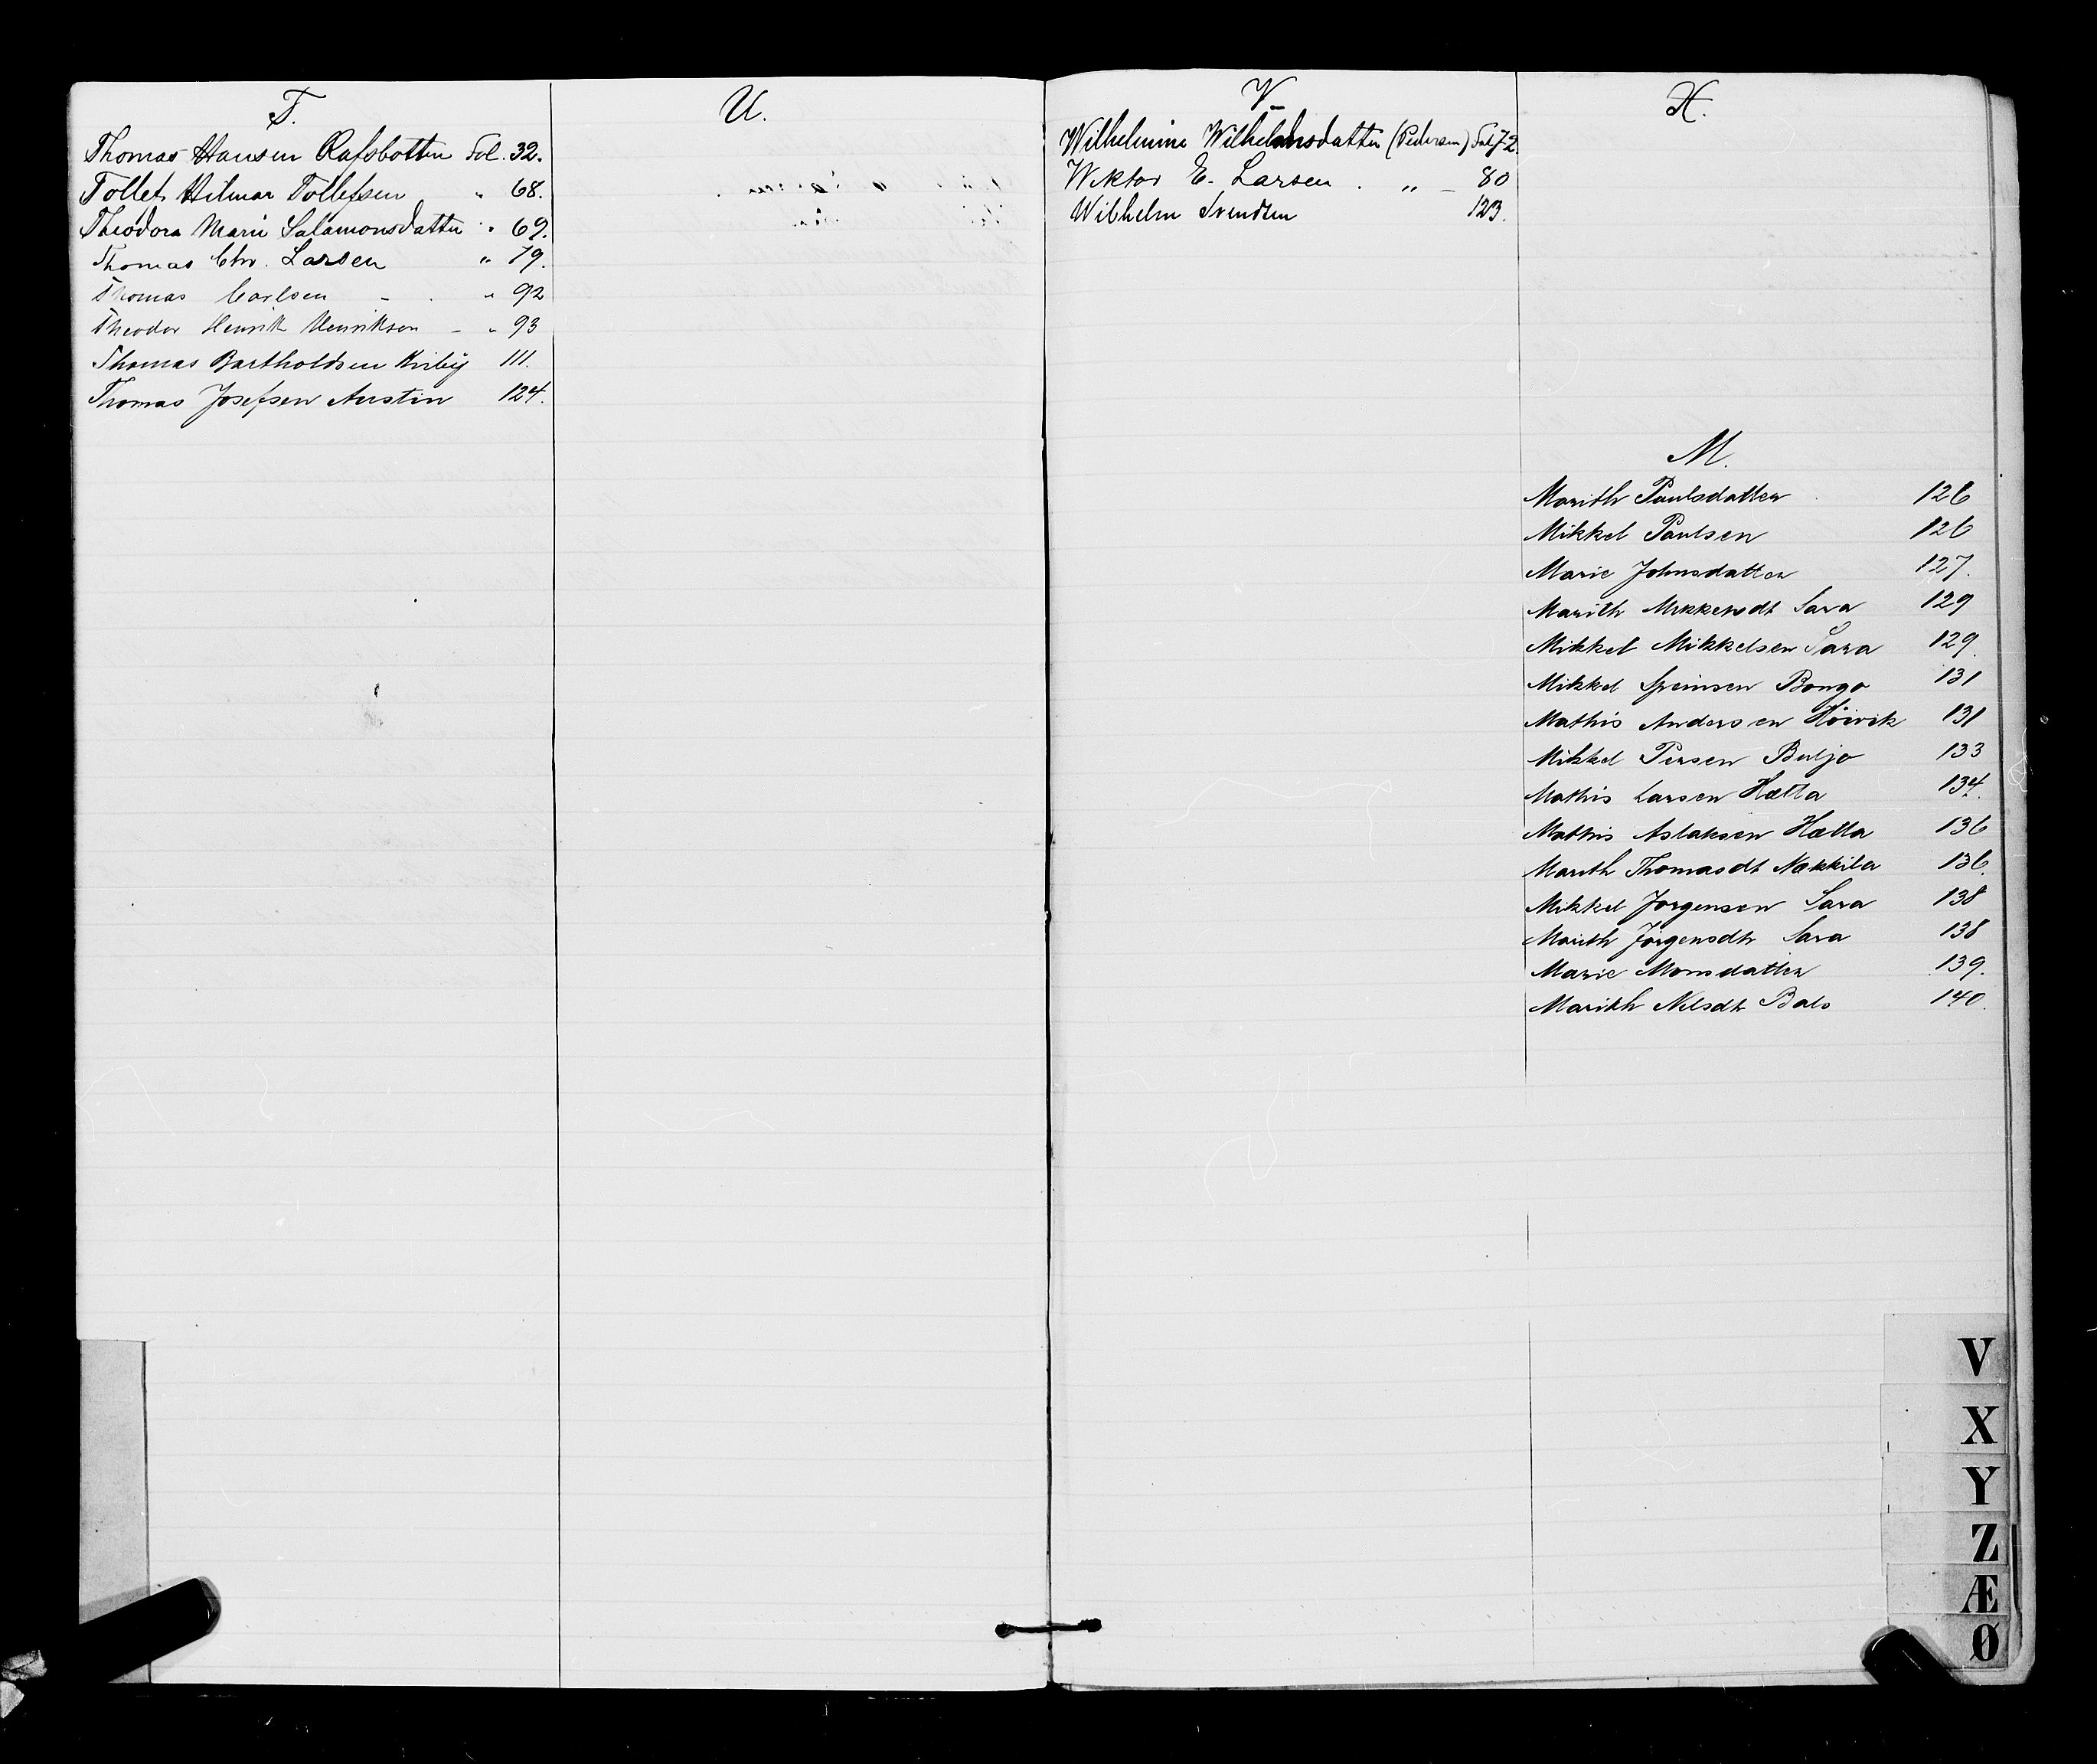 T.
Thomas Hansen Rafsbotten Fol. 32.
Tollef Hilmar Tollefsen " 68.
Theodora Marie Salamonsdatter " 69.
Thomas Chr. Larsen " 79.
Thomas Carlsen - " 92
Theodor Henrik Henriksen - " 93
Thomas Bartholdsen Kirby 111.
Thomas Josefsen Austin 124.
U.
V.
Wilhelmine Wilhelmsdatter (Pedersen) Fol 72.
Wiktor E. Larsen . " - 80
Wilhelm Svendsen 123.
X.
M.
Marith Paulsdatter 126
Mikkel Paulsen 126
Marie Johnsdatter 127.
Marith Mikkelsdt Sara 129
Mikkel Mikkelsen Sara 129.
Mikkel Bongo 131
Mathis Andersen Høivik 131
Mikkel Persen Buljo 133
Mathis Larsen Hætta 134.
Mathis Aslaksen Hætta 136
Marith Thomasdt Nækkila 136.
Mikkel Jørgensen Sara 138
Marith Jørgensdtr Sara 138
Marie Monsdatter 139.
Marith Nilsdtr Bals 140.
V
X
Y
Z
Æ
Ø